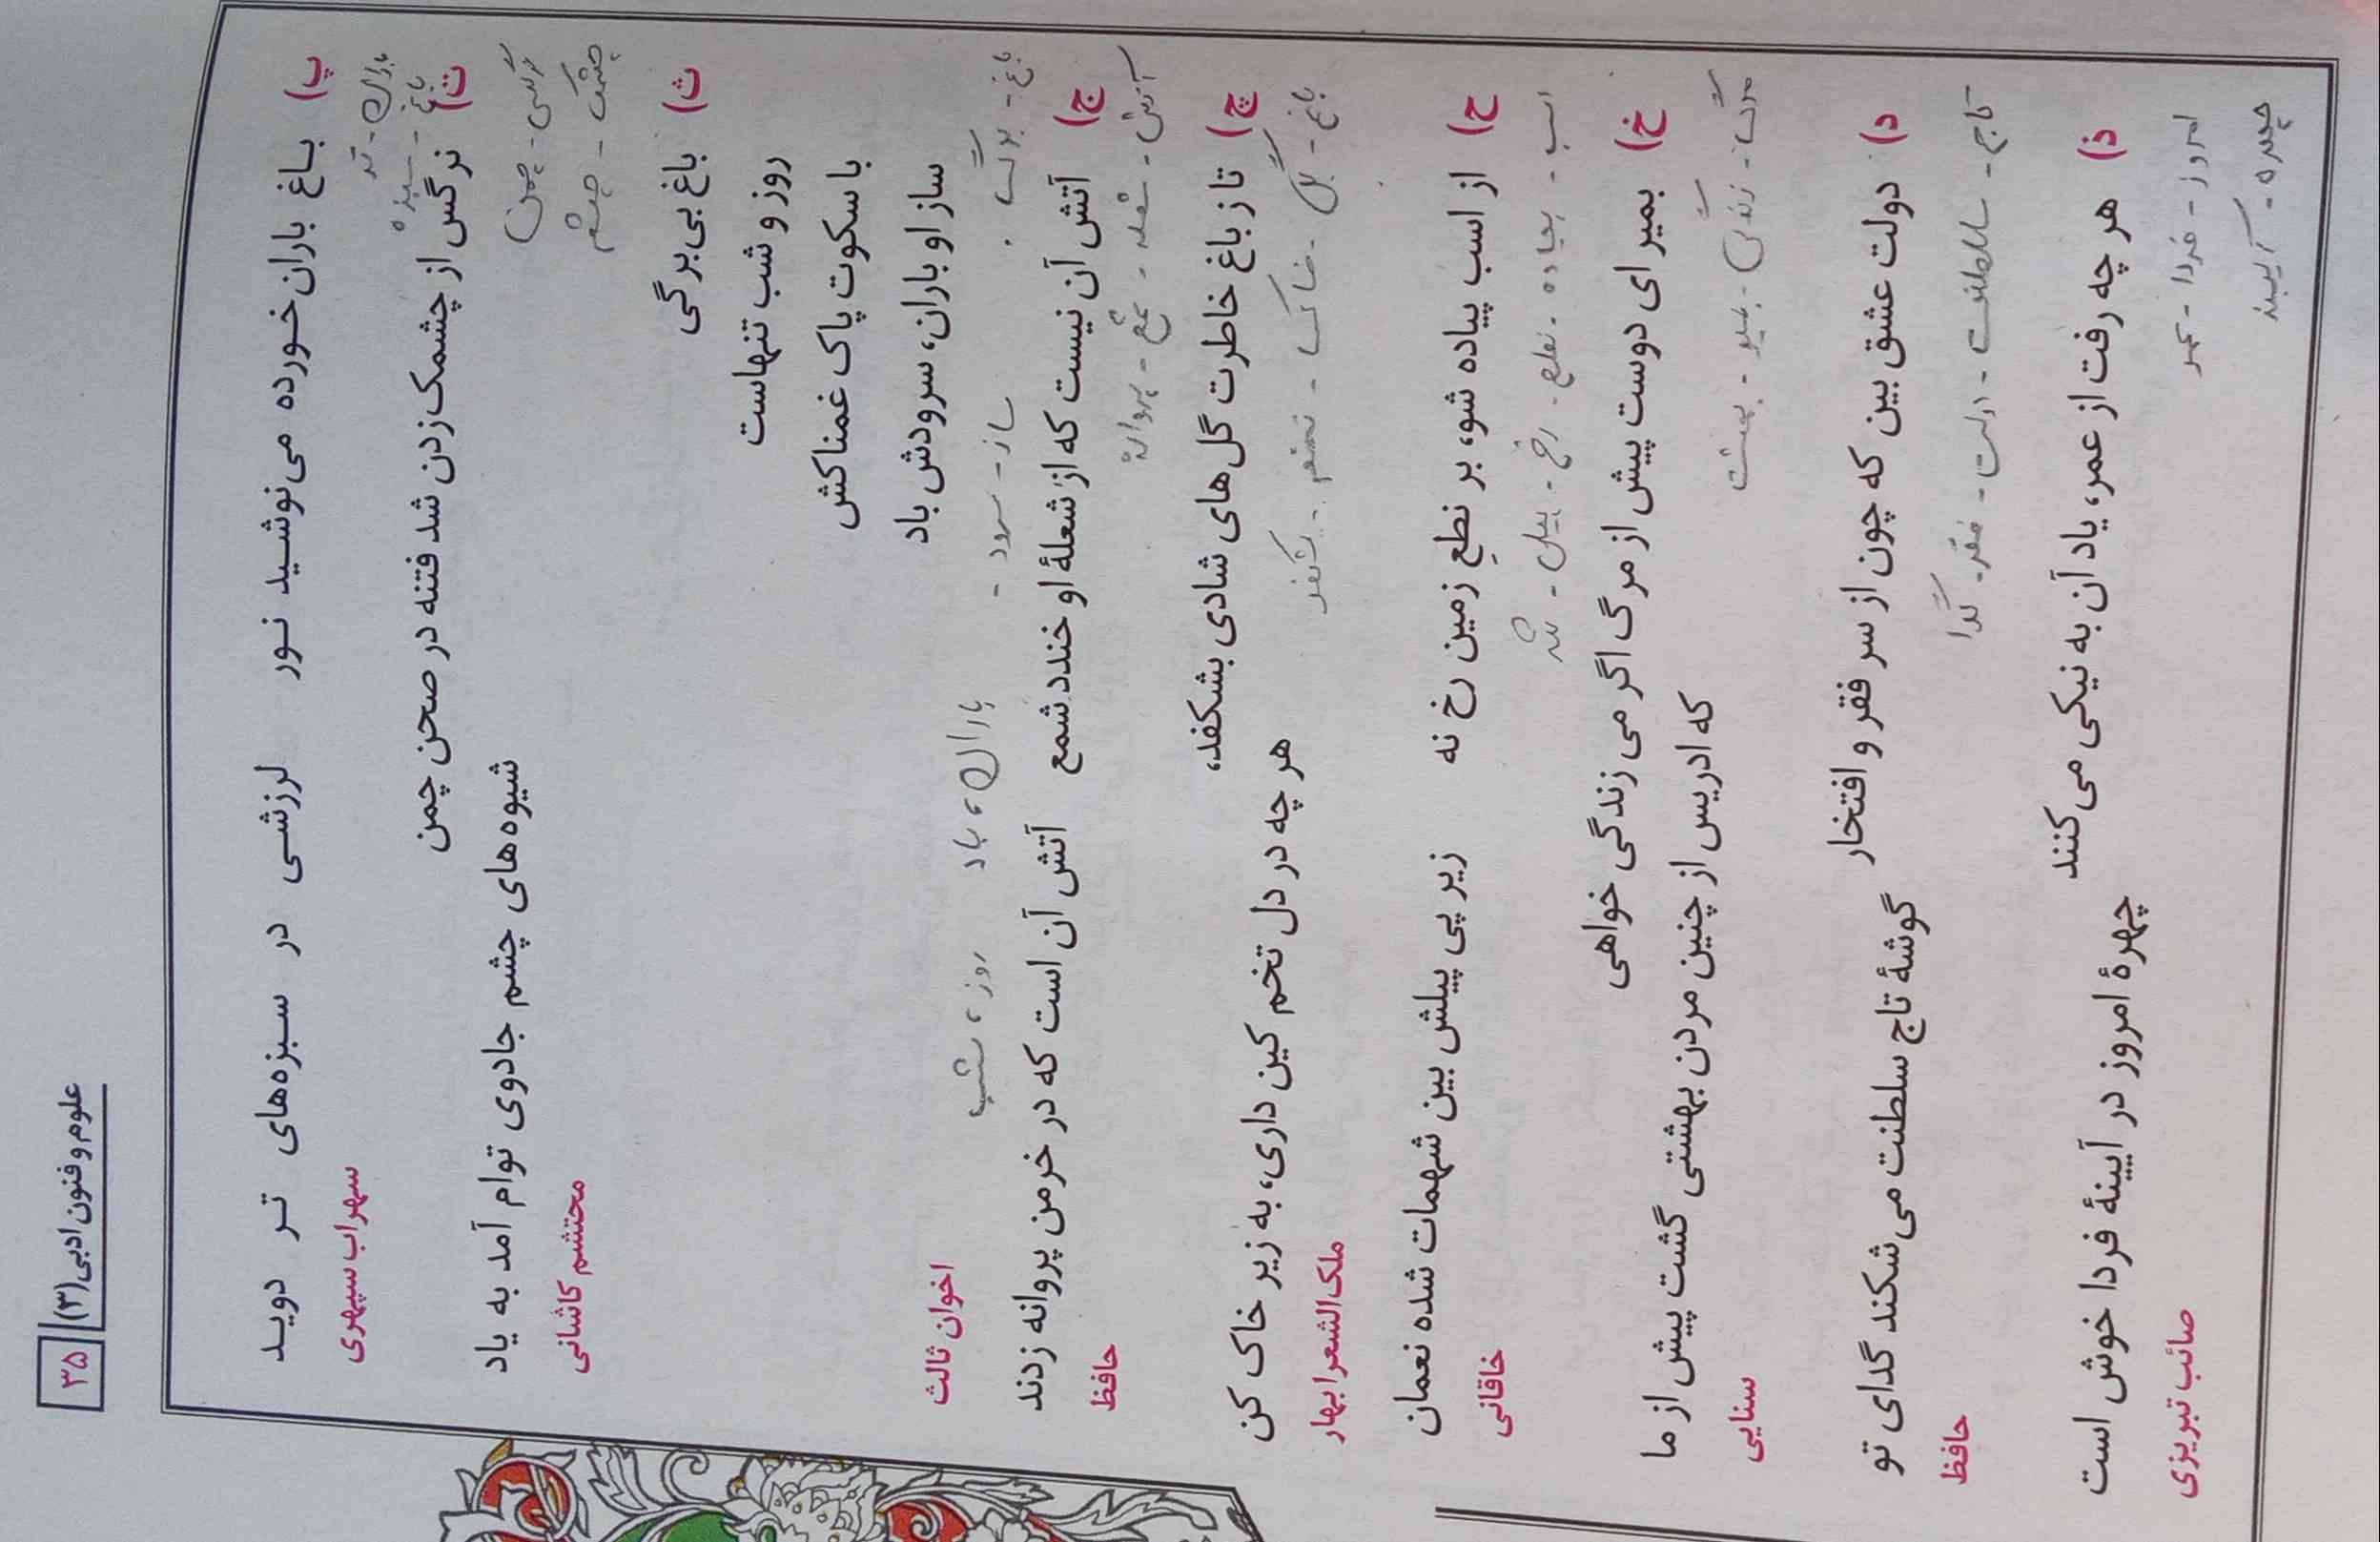 علوم و فنون ادبی (۳)
۳۵
پ) باغ باران خورده می‌نوشید نور لرزشی در سبزه‌های تر دوید
سهراب سپهری
باران - تر
باغ - سبزه
ت) نرگس از چشمک زدن شد فتنه در صحن چمن
شیوه‌های چشم جادوی توام آمد به یاد
محتشم کاشانی
نرگس - چمن
چشمک - چشم
ث) باغ بی‌برگی
روز و شب تنهاست
با سکوت پاک غمناکش
ساز او باران، سرودش باد
اخوان ثالث
باغ - برگ ساز - سرود - باران، باد روز، شب
ج) آتش آن نیست که از شعلهٔ او خندد شمع آتش آن است که در خرمن پروانه زدند
حافظ
آتش - شعله - شمع - پروانه
چ) تا ز باغ خاطرت گل‌های شادی بشکفد،
هر چه در دل تخم کین داری، به زیر خاک کن
ملک‌الشعرا بهار
باغ - گل - خاک - تخم - شکفد
ح) از اسب پیاده شو، بر نطع زمین رخ نه زیر پی پیلش بین شهمات شده نعمان
خاقانی
اسب - پیاده - نطع - رخ - پیل - شه
خ) بمیر ای دوست پیش از مرگ اگر می زندگی خواهی
که ادریس از چنین مردن بهشتی گشت پیش از ما
سنایی
مرگ - زندگی - بمیر - بهشت
د) دولت عشق بین که چون از سر فقر و افتخار
گوشهٔ تاج سلطنت می‌شکند گدای تو
حافظ
تاج - سلطنت - دولت - فقر - گدا
ذ) هر چه رفت از عمر، یاد آن به نیکی می‌کنند
چهرهٔ امروز در آیینهٔ فردا خوش است
صائب تبریزی
امروز - فردا - عمر
چهره - آیینه